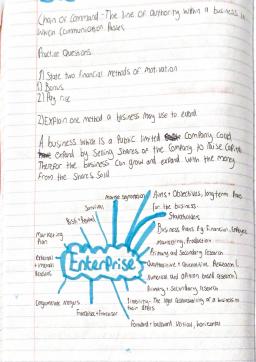 Chain of Command - The line of authority within a business in
which communication passes
Practice Questions
1) State two financial methods of motivation
1) Bonus
2) Pay rise
2) Explain one method a business may use to expand
A business which is a Public limited Company could
expand by Selling Shares of the Company to Raise Capital
Therefor the business can grow and expand with the money
from the Shares Sold
Market Segmentation
Survival
Aims + Objectives, long-term Plans
for the business.
Stakeholders
Business Plans Eg Financial,
Marketing, Production
Primary and Secondary research
Quantitative + Qualitative Research (
Numerical and opinion based research)
Primary + Secondary research
Marketing
Plan
External +
internal
Reasons
Enterprise
Conglomerate mergers
Franchise + Franchisor
Liability - The legal responsibility of a business to
their debts
Forward + backward vertical, horizontal